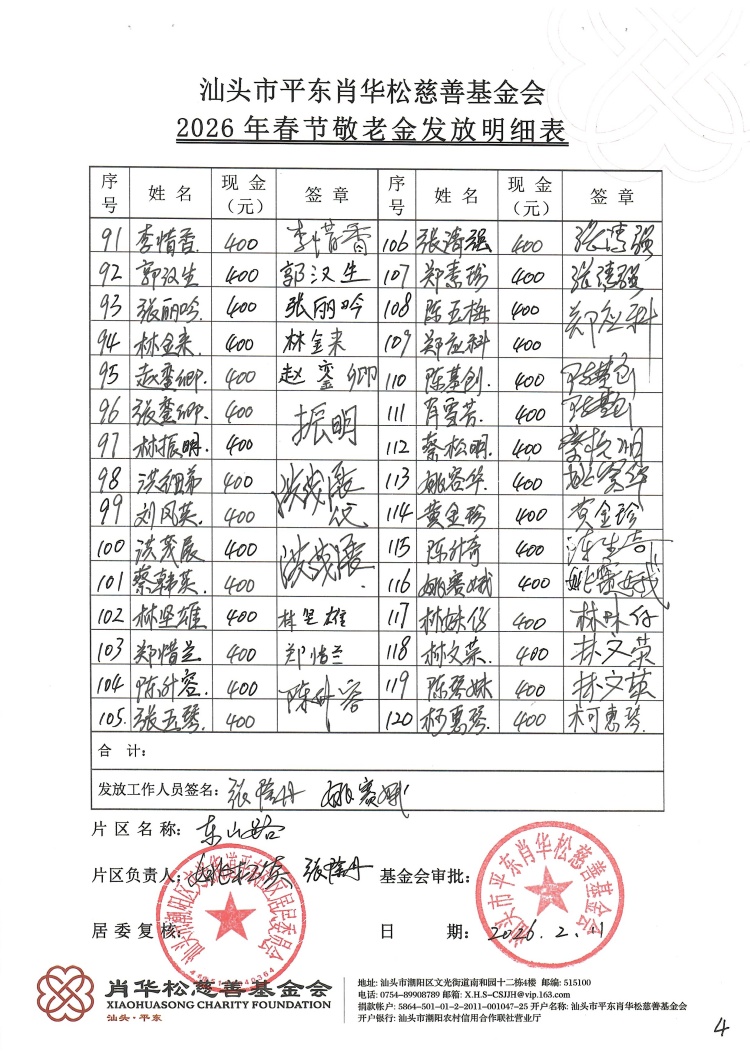 汕头市平东肖华松慈善基金会
2026 年春节敬老金发放明细表
序号 姓 名 现 金（元） 签 章 序号 姓 名 现 金（元） 签 章
91 李惜香 400 李惜香 106 张涛强 400 张涛强
92 郭汉生 400 郭汉生 107 郑素珍 400 张涛强
93 张丽吟 400 张丽吟 108 陈玉梅 400 郑应科
94 林金来 400 林金来 109 郑应科 400
95 赵銮卿 400 赵銮卿 110 陈基创 400 陈基创
96 张銮卿 400 振明 111 肖雪芳 400 陈基创
97 林振明 400 112 蔡松明 400 蔡松明
98 洪细弟 400 洪茂展代 113 姚容华 400 姚容华
99 刘凤英 400 114 黄金珍 400 黄金珍
100 洪茂展 400 洪茂展 115 陈升奇 400
101 蔡韩英 400 116 姚赛娥 400 姚赛娥
102 林坚雄 400 林坚雄 117 林妹仔 400 林妹仔
103 郑惜兰 400 郑惜兰 118 林文英 400 林文英
104 陈升容 400 陈升容 119 陈琴妹 400 林文英
105 张玉琴 400 120 柯惠琴 400 柯惠琴
合 计：
发放工作人员签名： 姚赛娥
片 区 名 称： 东山路
片区负责人： 基金会审批：
居 委 复 核： 日 期： 2026.2.11
汕头市平东肖华松慈善基金会
肖华松慈善基金会
XIAOHUASONG CHARITY FOUNDATION
汕头·平东
地址: 汕头市潮阳区文光街道南和园十二栋4楼 邮编: 515100
电话: 0754-89908789 邮箱: X.H.S-CSJJH@vip.163.com
捐款帐户: 5864-501-01-2-2011-001047-25 开户名称: 汕头市平东肖华松慈善基金会
开户银行: 汕头市潮阳农村信用合作联社营业厅
4